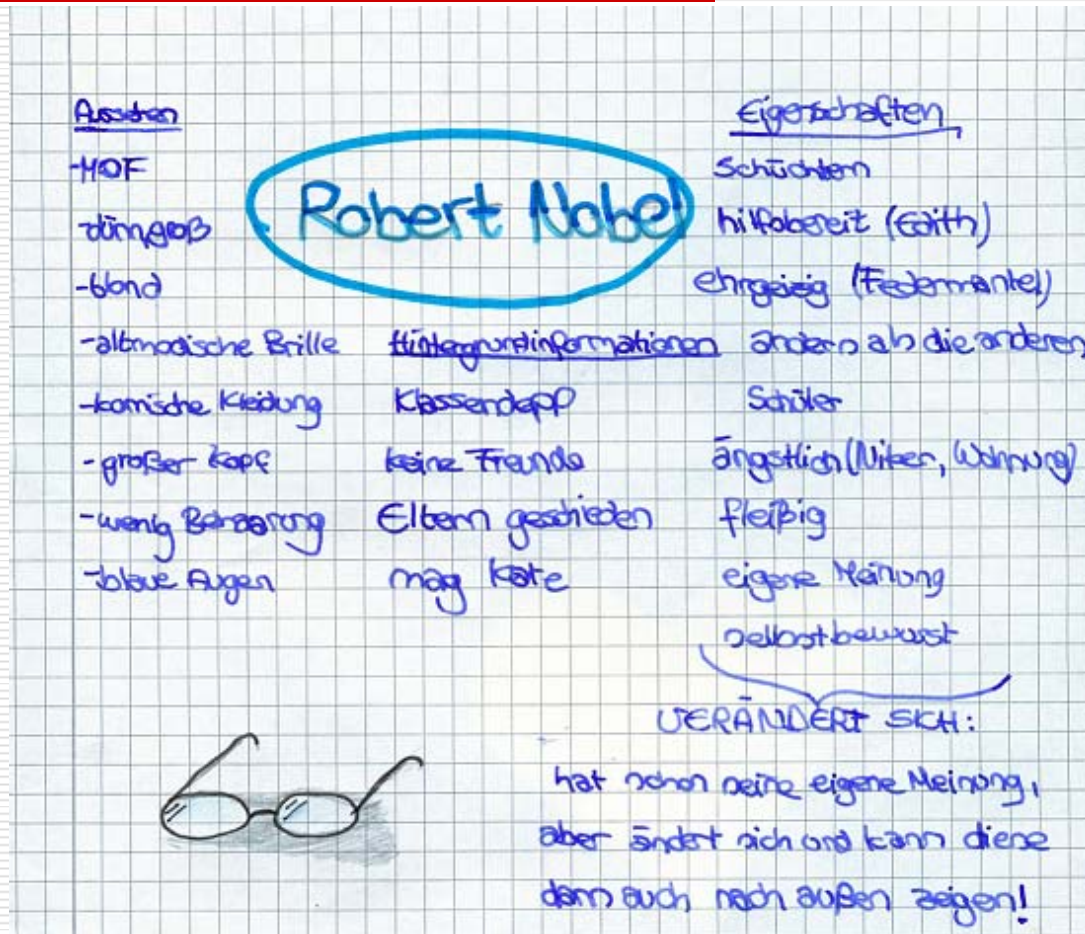 Robert Nobel
Aussehen
-MOF
-dünn, groß
-blond
-altmodische Brille
-komische Kleidung
-großer Kopf
-wenig Behaarung
-blaue Augen
Hintergrundinformationen
Klassendepp
keine Freunde
Eltern geschieden
mag Kate
Eigenschaften
schüchtern
hilfsbereit (Edith)
ehrgeizig (Federmantel)
anders als die anderen
Schüler
ängstlich (Niker, Wohnung)
fleißig
eigene Meinung
selbstbewusst
VERÄNDERT SICH:
hat schon seine eigene Meinung,
aber ändert sich und kann diese
dann auch nach außen zeigen!